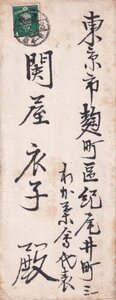 東京市麹町區紀尾井町三
わか葉會代表
関屋衣子殿